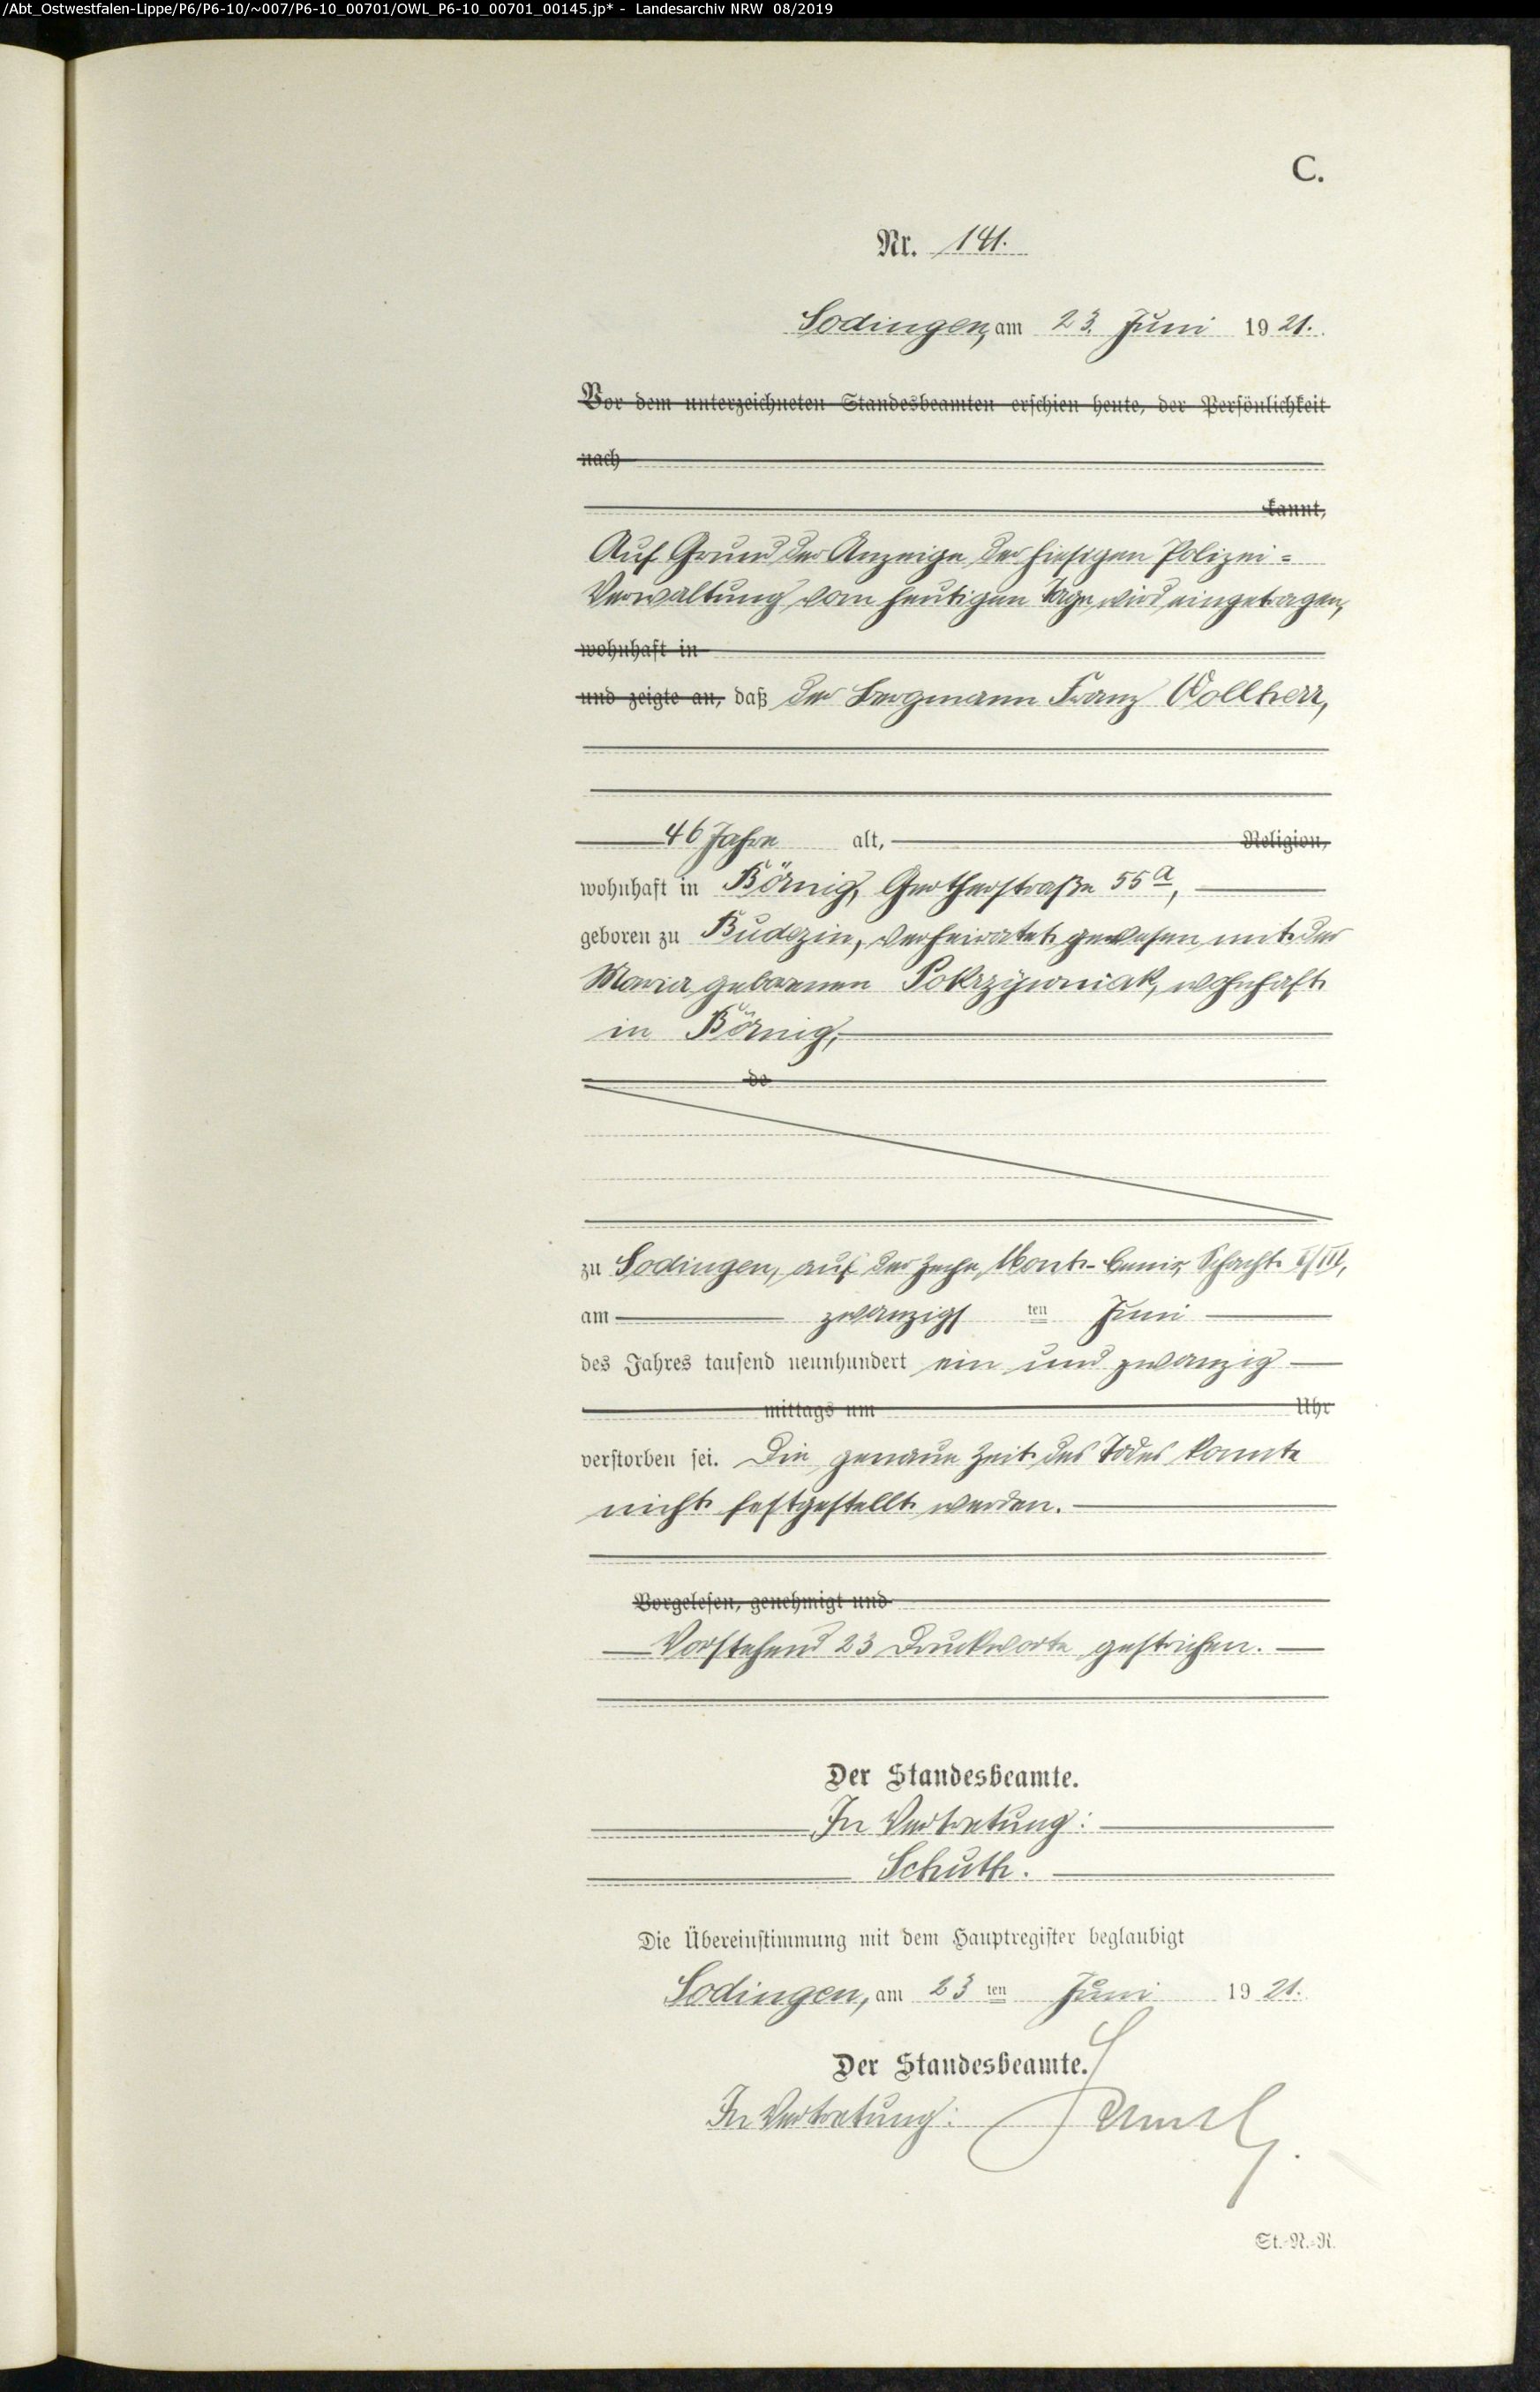 /Abt_Ostwestfalen-Lippe/P6/P6-10/~007/P6-10_00701/OWL_P6-10_00701_00145.jp* - Landesarchiv NRW 08/2019
C.
Nr. 141.
Sodingen, am 23. Juni 1921.
Vor dem unterzeichneten Standesbeamten erschien heute, der Persönlichkeit
nach
kannt,
Auf Grund der Anzeige der hiesigen Polizei=
Verwaltung vom heutigen Tage wird eingetragen,
wohnhaft in
und zeigte an, daß der Bergmann Franz Wollherr,
46 Jahre alt, Religion,
wohnhaft in Börnig, Gertherstraße 55a,
geboren zu Budzin, verheiratet gewesen mit der
Maria geborenen Pokrzywniak, wohnhaft
in Börnig,
de
zu Sodingen, auf der Zeche Mont-Cenis, Schacht I/III,
am zwanzigsten Juni
des Jahres tausend neunhundert ein und zwanzig
mittags um Uhr
verstorben sei. Die genaue Zeit des Todes konnte
nicht festgestellt werden.
Vorgelesen, genehmigt und
Vorstehend 23 Druckworte gestrichen.
Der Standesbeamte.
In Vertretung:
Schuth.
Die Übereinstimmung mit dem Hauptregister beglaubigt
Sodingen, am 23ten Juni 1921.
Der Standesbeamte.
In Vertretung:
St.-N.-R.